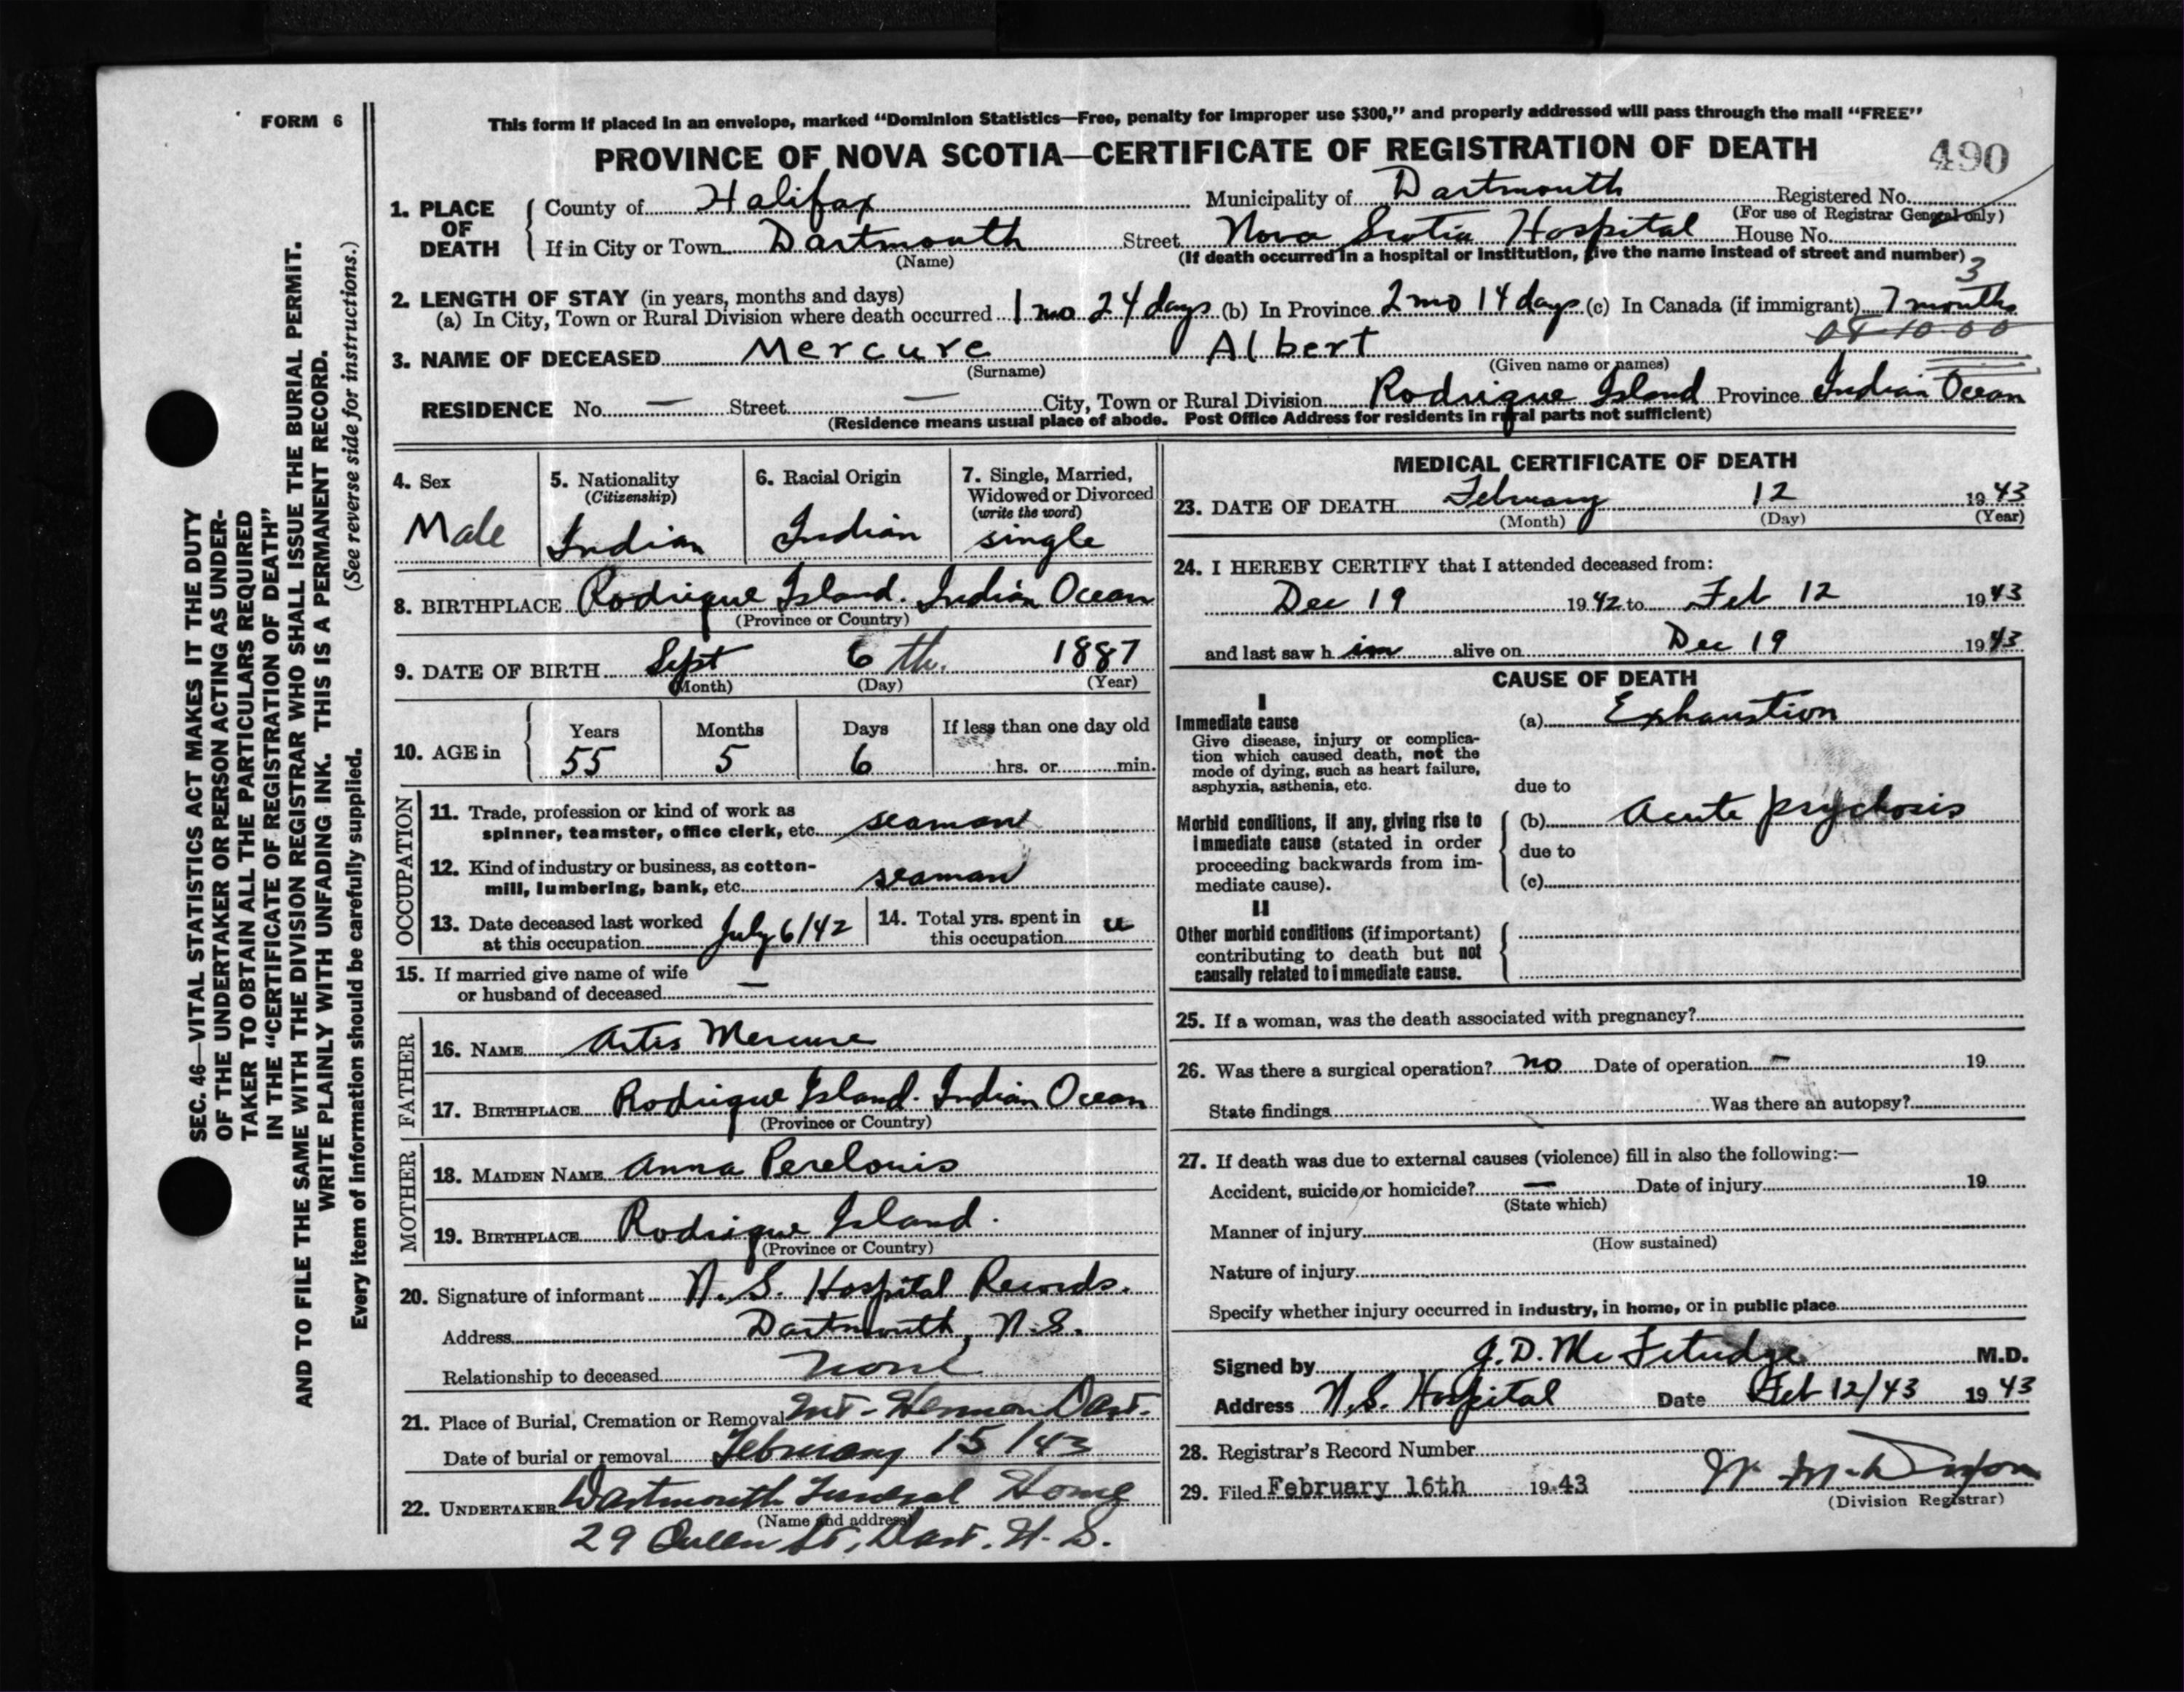 FORM 6
This form if placed in an envelope, marked “Dominion Statistics—Free, penalty for improper use $300,” and properly addressed will pass through the mail “FREE”
PROVINCE OF NOVA SCOTIA—CERTIFICATE OF REGISTRATION OF DEATH
490
1. PLACE OF DEATH
County of Halifax Municipality of Dartmouth Registered No.
(For use of Registrar General only)
If in City or Town Dartmouth Street Nova Scotia Hospital House No.
(Name) (If death occurred in a hospital or institution, give the name instead of street and number)
3
2. LENGTH OF STAY (in years, months and days)
(a) In City, Town or Rural Division where death occurred 1 mo 24 days (b) In Province 2 mo 14 days (c) In Canada (if immigrant) 7 months
3. NAME OF DECEASED Mercure Albert
(Surname) (Given name or names)
RESIDENCE No. — Street — City, Town or Rural Division Rodrique Island Province Indian Ocean
(Residence means usual place of abode. Post Office Address for residents in rural parts not sufficient)
4. Sex
Male
5. Nationality
(Citizenship)
Indian
6. Racial Origin
Indian
7. Single, Married,
Widowed or Divorced
(write the word)
single
8. BIRTHPLACE Rodrique Island. Indian Ocean
(Province or Country)
9. DATE OF BIRTH Sept 6 th. 1887
(Month) (Day) (Year)
10. AGE in
Years Months Days If less than one day old
55 5 6 hrs. or min.
OCCUPATION
11. Trade, profession or kind of work as
spinner, teamster, office clerk, etc. seaman
12. Kind of industry or business, as cotton-
mill, lumbering, bank, etc. seaman
13. Date deceased last worked
at this occupation July 6/42
14. Total yrs. spent in
this occupation u
15. If married give name of wife
or husband of deceased —
FATHER
16. NAME Artis Mercure
17. BIRTHPLACE Rodrique Island. Indian Ocean
(Province or Country)
MOTHER
18. MAIDEN NAME Anna Perelouis
19. BIRTHPLACE Rodrique Island.
(Province or Country)
20. Signature of informant N. S. Hospital Records.
Address Dartmouth, N.S.
Relationship to deceased none
21. Place of Burial, Cremation or Removal Mt- Hermon Dart.
Date of burial or removal February 15/43
22. UNDERTAKER Dartmouth Funeral Home
(Name and address)
29 Queen St, Dart. N. S.
MEDICAL CERTIFICATE OF DEATH
23. DATE OF DEATH February 12 1943
(Month) (Day) (Year)
24. I HEREBY CERTIFY that I attended deceased from:
Dec 19 1942 to Feb 12 1943
and last saw h im alive on Dec 19 1943
CAUSE OF DEATH
I
Immediate cause
Give disease, injury or complica-
tion which caused death, not the
mode of dying, such as heart failure,
asphyxia, asthenia, etc.
(a) Exhaustion
due to
Morbid conditions, if any, giving rise to
immediate cause (stated in order
proceeding backwards from im-
mediate cause).
(b) Acute psychosis
due to
(c)
II
Other morbid conditions (if important)
contributing to death but not
causally related to immediate cause.
25. If a woman, was the death associated with pregnancy?
26. Was there a surgical operation? no Date of operation — 19
State findings Was there an autopsy?
27. If death was due to external causes (violence) fill in also the following:—
Accident, suicide or homicide? — Date of injury 19
(State which)
Manner of injury
(How sustained)
Nature of injury
Specify whether injury occurred in industry, in home, or in public place
Signed by J. D. McFetridge M.D.
Address N.S. Hospital Date Feb 12/43 1943
28. Registrar's Record Number
29. Filed February 16th 1943
(Division Registrar)
SEC. 46—VITAL STATISTICS ACT MAKES IT THE DUTY
OF THE UNDERTAKER OR PERSON ACTING AS UNDER-
TAKER TO OBTAIN ALL THE PARTICULARS REQUIRED
IN THE “CERTIFICATE OF REGISTRATION OF DEATH”
AND TO FILE THE SAME WITH THE DIVISION REGISTRAR WHO SHALL ISSUE THE BURIAL PERMIT.
WRITE PLAINLY WITH UNFADING INK. THIS IS A PERMANENT RECORD.
(See reverse side for instructions.)
Every item of information should be carefully supplied.